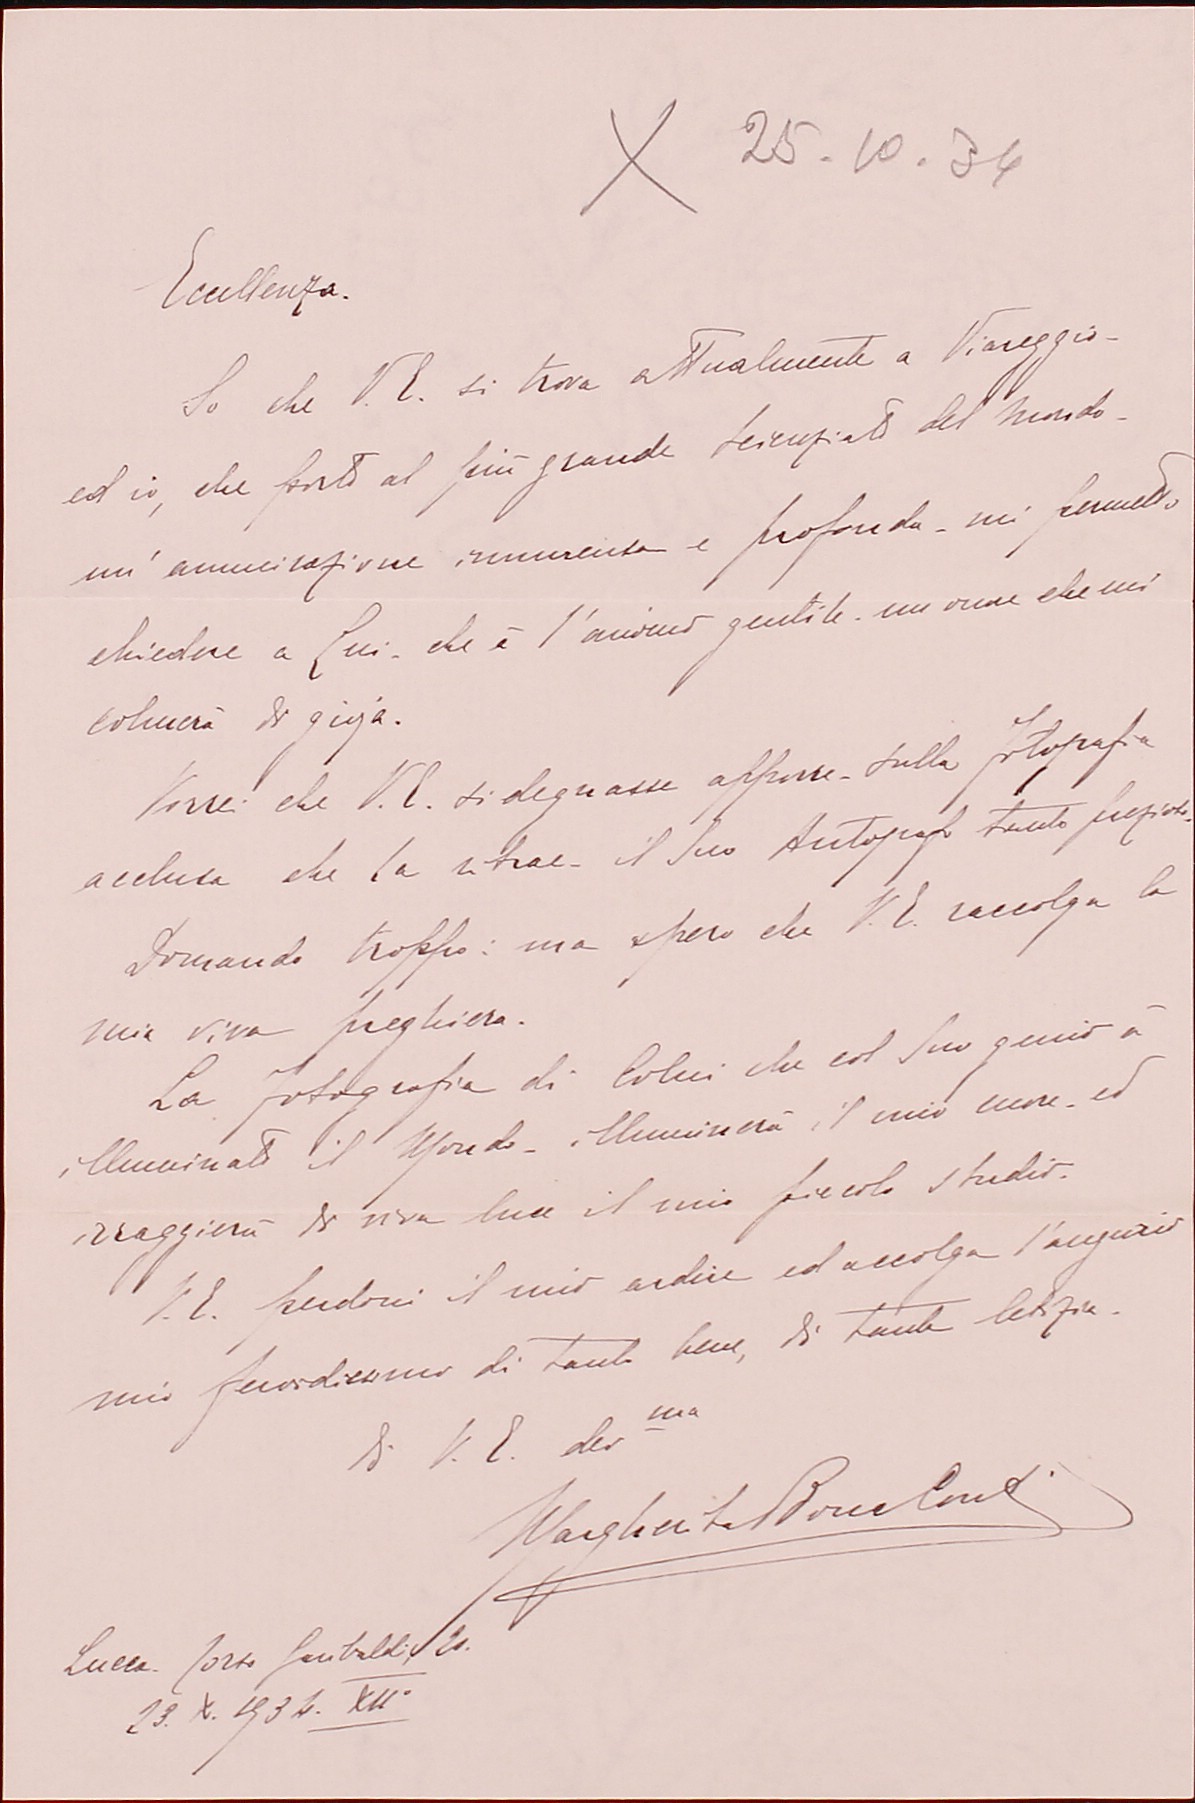 X 25-10.34
Eccellenza.
So che V.E. si trova attualmente a Viareggio-
ed io, che porto al più grande scienziato del mondo-
un'ammirazione immensa e profonda- mi permetto
chiedere a Lui- che à l'animo gentile- un onore che mi
colmerà di gioja.
Vorrei che V.E. si degnasse apporre- sulla fotografia
acclusa che la ritrae- il Suo Autografo tanto prezioso.
Domando troppo: ma spero che V.E. raccolga la
mia viva preghiera.
La fotografia di Colui che col Suo genio à
illuminato il Mondo- illuminerà il mio cuore- ed
irraggierà di viva luce il mio piccolo studio.
V.E. perdoni il mio ardire ed accolga l'augurio
mio fervidissimo di tanto bene, di tanta letizia.
di V.E. dev ma
Margherita Conti
Lucca- Corso Garibaldi,
23. X. 1934. XII°